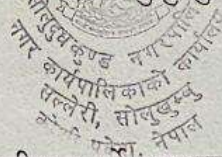 सोलुदुधकुण्ड नगरपालिका
नगर कार्यपालिकाको कार्यालय
सल्लेरी, सोलुखुम्बु
कोशी प्रदेश, नेपाल